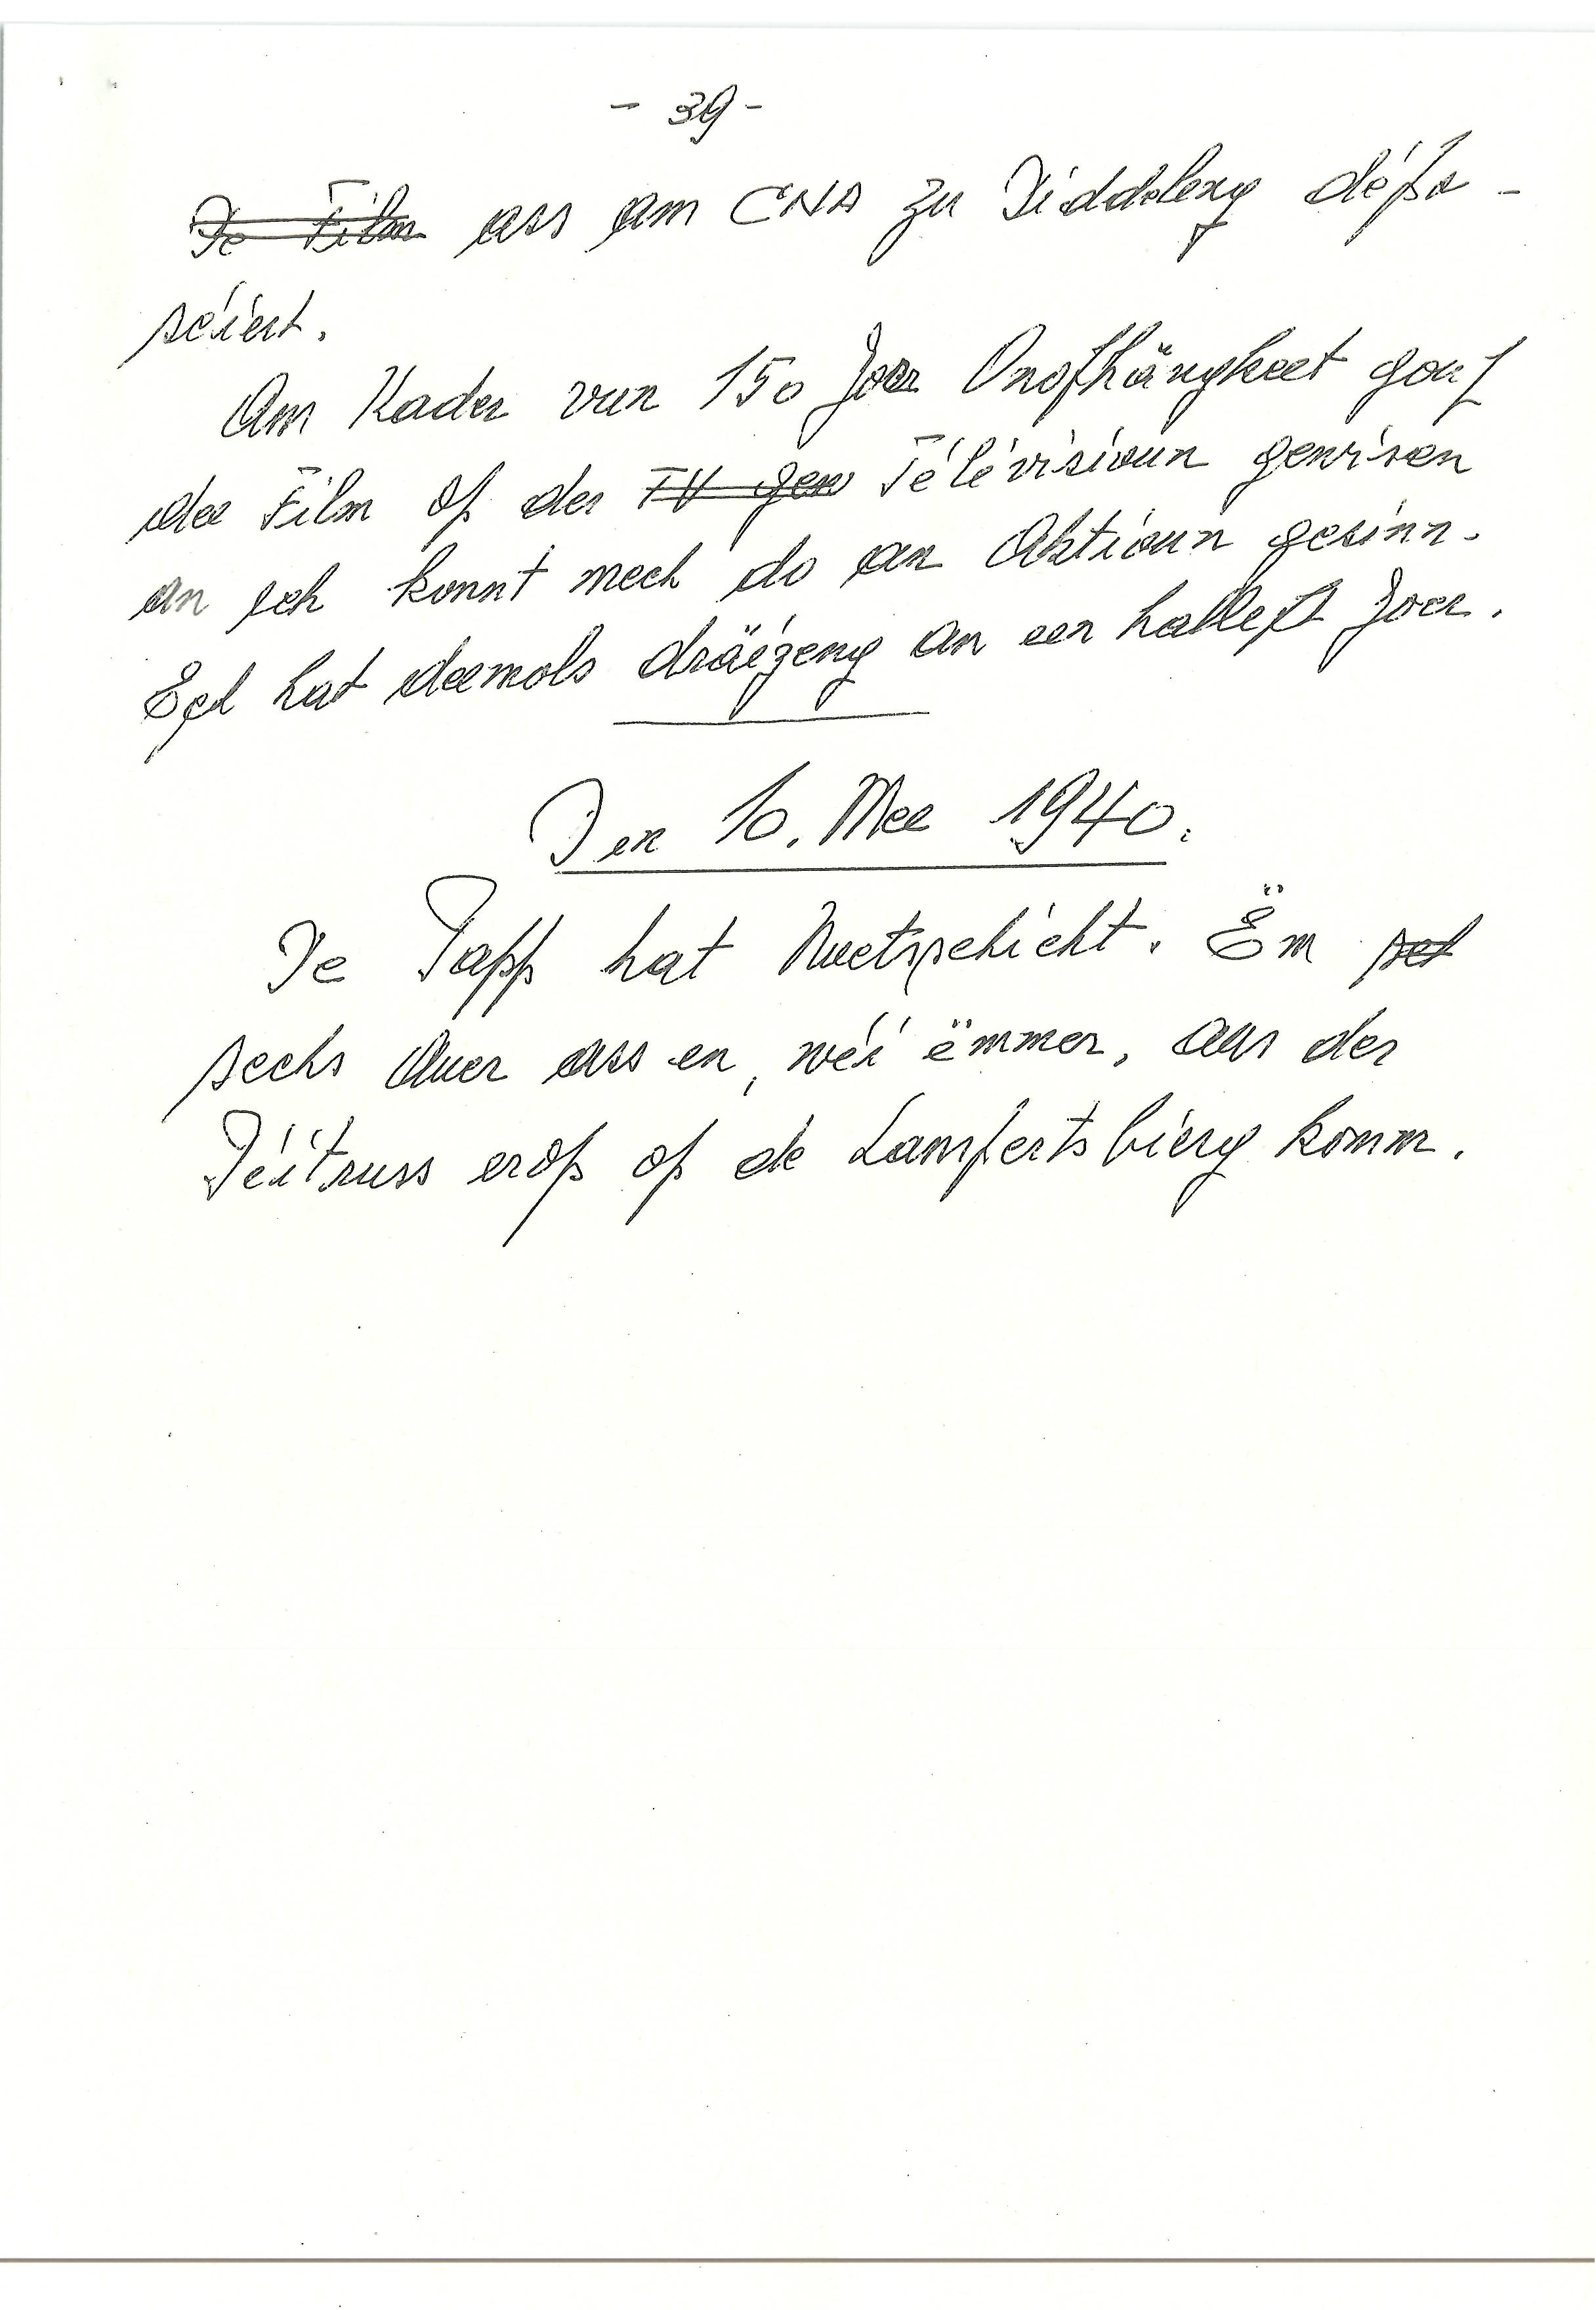 - 39 -
De Film ass am CNA zu Diddeleng dépo-
séiert.
Am Kader vun 150 Joer Onofhängkeet gouf
dee Film op der TV gew Télévisioun gewisen
an ech konnt mech do an Aktioun gesinn.
Ech hat deemols dräizeng an een halleft Joer.
Den 10. Mee 1940.
De Papp hat Nuetsschicht. Ëm set
sechs Auer ass en, wéi ëmmer, aus der
Péitruss erop op de Lampertsbierg komm.